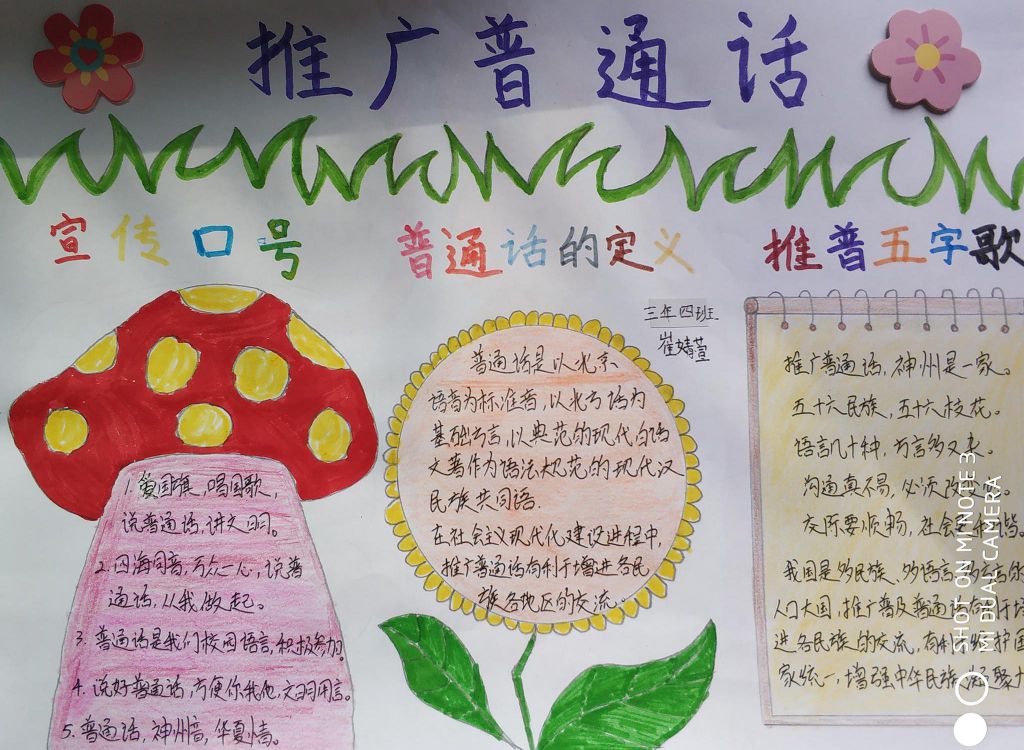 推广普通话
宣传口号
普通话的定义
推普五字歌
1. 爱国旗,唱国歌,
说普通话,讲文明。
2. 四海同音,万众一心,说普
通话,从我做起。
3. 普通话是我们校园语言,积极参加。
4. 说好普通话,方便你我他,文明用言。
5. 普通话,神州音,华夏情。
三年四班
崔婧萱
普通话是以北京
语音为标准音,以北方话为
基础方言,以典范的现代白话
文著作为语法规范的现代汉
民族共同语.
在社会主义现代化建设进程中,
推广普通话有利于增进各民
族各地区的交流。
推广普通话,神州是一家。
五十六民族,五十六枝花。
语言几十种,方言多又杂。
沟通真不易,必须改
交际要顺畅,社会
我国是多民族、多语言、多方言的
人口大国,推广普及普通话有利于增
进各民族的交流,有利于维护国
家统一,增强中华民族
SHOT ON MI NOTE 3
MI DUAL CAMERA